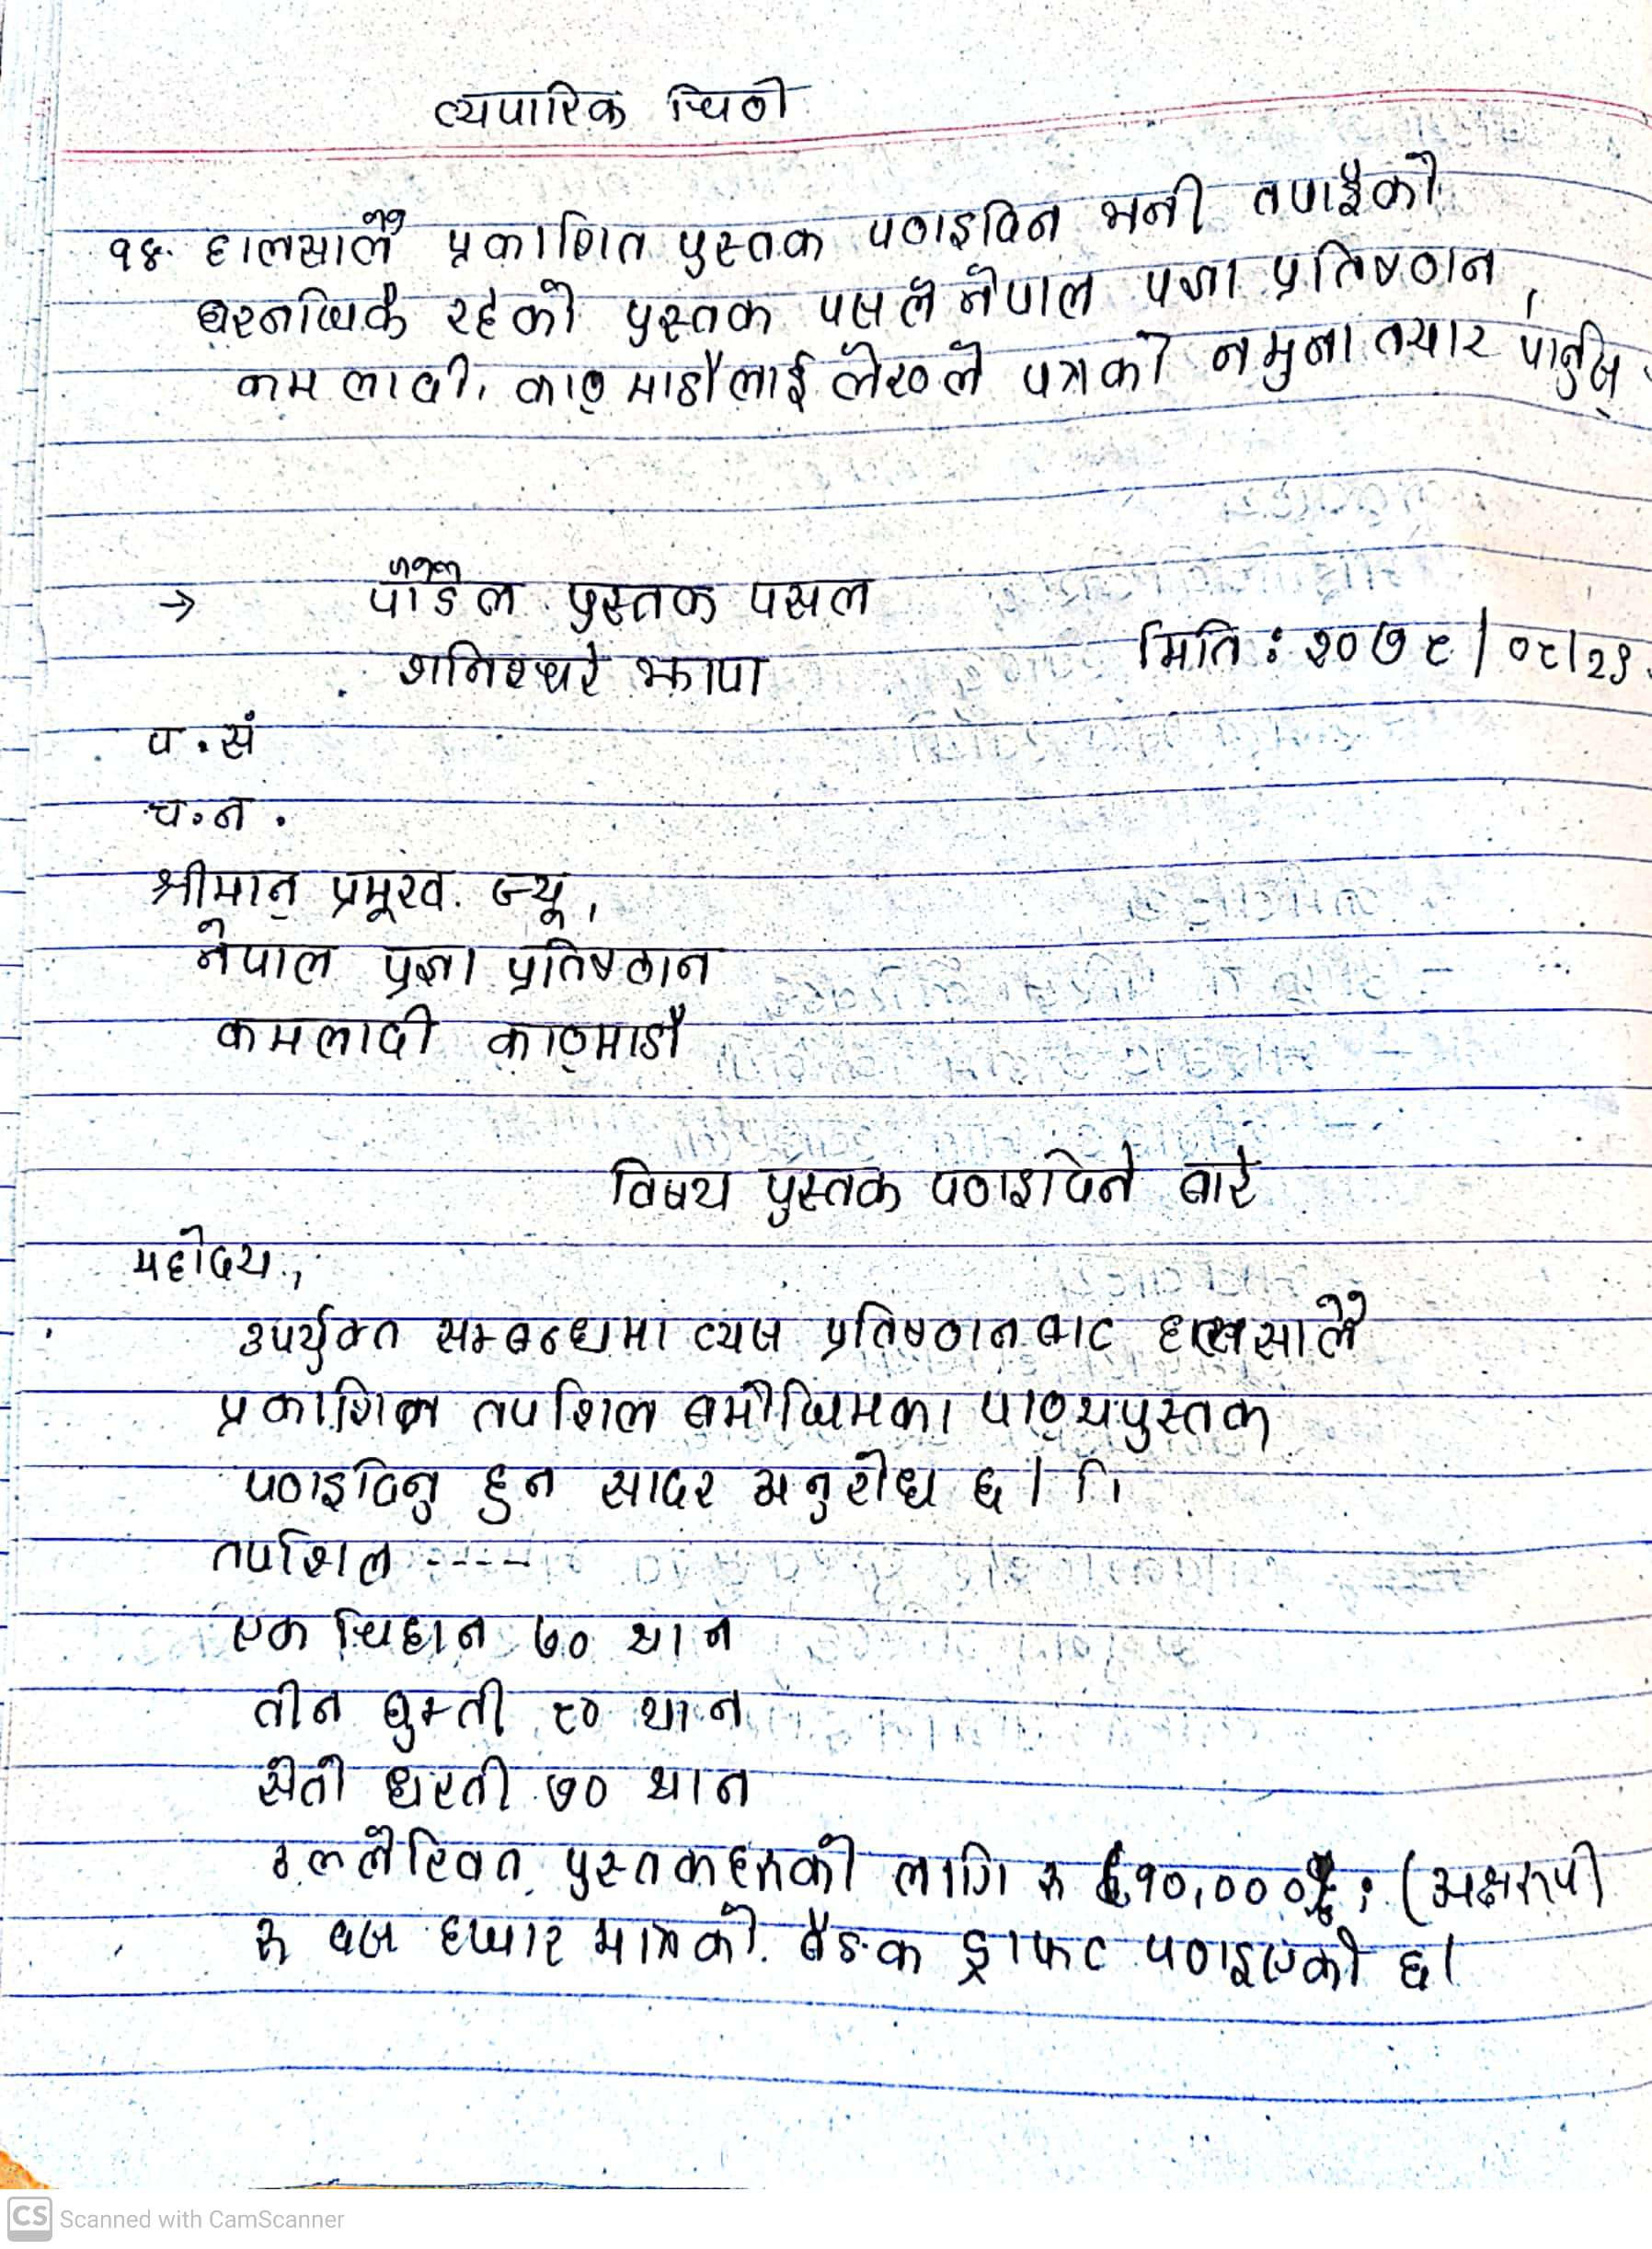 व्यपारिक चिठी
१४. हालसालै प्रकाशित पुस्तक पठाइदिन भनी तपाईको
घरनजिकै रहेको पुस्तक पसलले नेपाल प्रज्ञा प्रतिष्ठान,
कमलादी, काठ्माडौलाई लेख्ने पत्रको नमुना तयार पार्नुस्
→ पौडेल पुस्तक पसल
शनिश्चरे झापा
मिति : २०७९/०८/२९
प.सं
च.न.
श्रीमान् प्रमूख ज्यू,
नेपाल प्रज्ञा प्रतिष्ठान
कमलादी काठ्माडौ
विषय पुस्तक पठाइदिने बारे
महोदय,
उपर्युक्त सम्बन्धमा त्यस प्रतिष्ठानबाट हालसालै
प्रकाशित तपशिल बमोजिमका पाठ्यपुस्तक
पठाइदिनु हुन सादर अनुरोध छ।
तपशिल ----
एक चिहान ७० थान
तीन घुम्ती ८० थान
सेतो धरती ७० थान
उल्लेखित पुस्तकहरुको लागि रु १०,००० (अक्षरुपी
रु दस हजार मात्रको बैङक ड्राफट पठाइएको छ।
CS Scanned with CamScanner